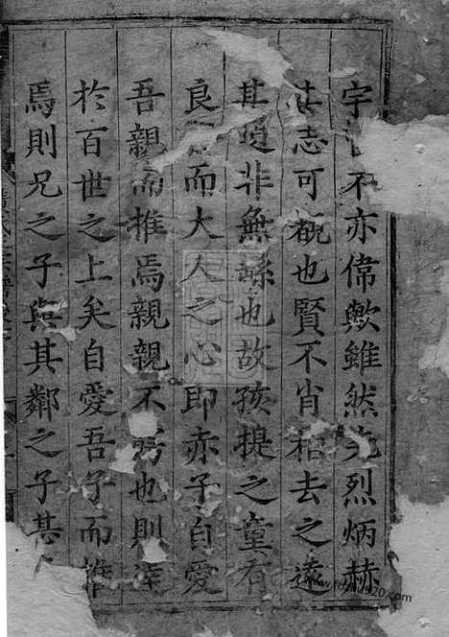 宇不亦偉歟雖然光烈炳赫
志可觀也賢不肖相去之遠
其道非無繇也故孩提之童有
良而大人之心即赤子自愛
吾親而推焉親親不巳也則達
於百世之上矣自愛吾子而推
焉則兄之子與其鄰之子甚